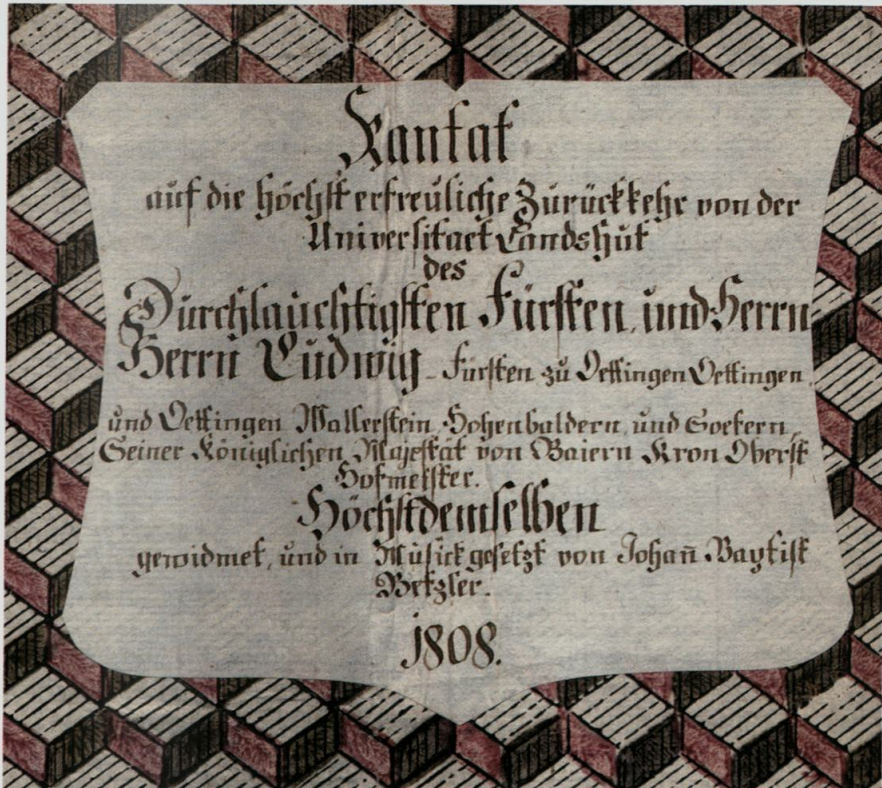 Kantat
auf die höchst erfreuliche Zurückkehr von der
Universitaet Landshut
des
Durchlauchtigsten Fürsten, und Herrn
Herrn Ludwig Fürsten zu Oettingen Oettingen,
und Oettingen Wallerstein, Hohenbaldern, und Soetern,
Seiner Königlichen Majestät von Baiern Kron Oberst
Hofmeister.
Höchstdemselben
gewidmet, und in Musick gesetzt von Johan̄ Baptist
Betzler.
1808.